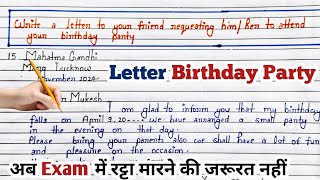 Write a letter to your friend requesting him/her to attend
your birthday party
15 Mahatma Gandhi
Marg Lucknow
November 2024
Letter Birthday Party
Mukesh
I am glad to inform you that my birthday
falls on April 9, 20---- we have arranged a small party
in the evening on that day.
Please bring your parents also we shall have a lot of fun
and pleasure on the occasion.
अब Exam में रट्टा मारने की जरूरत नहीं